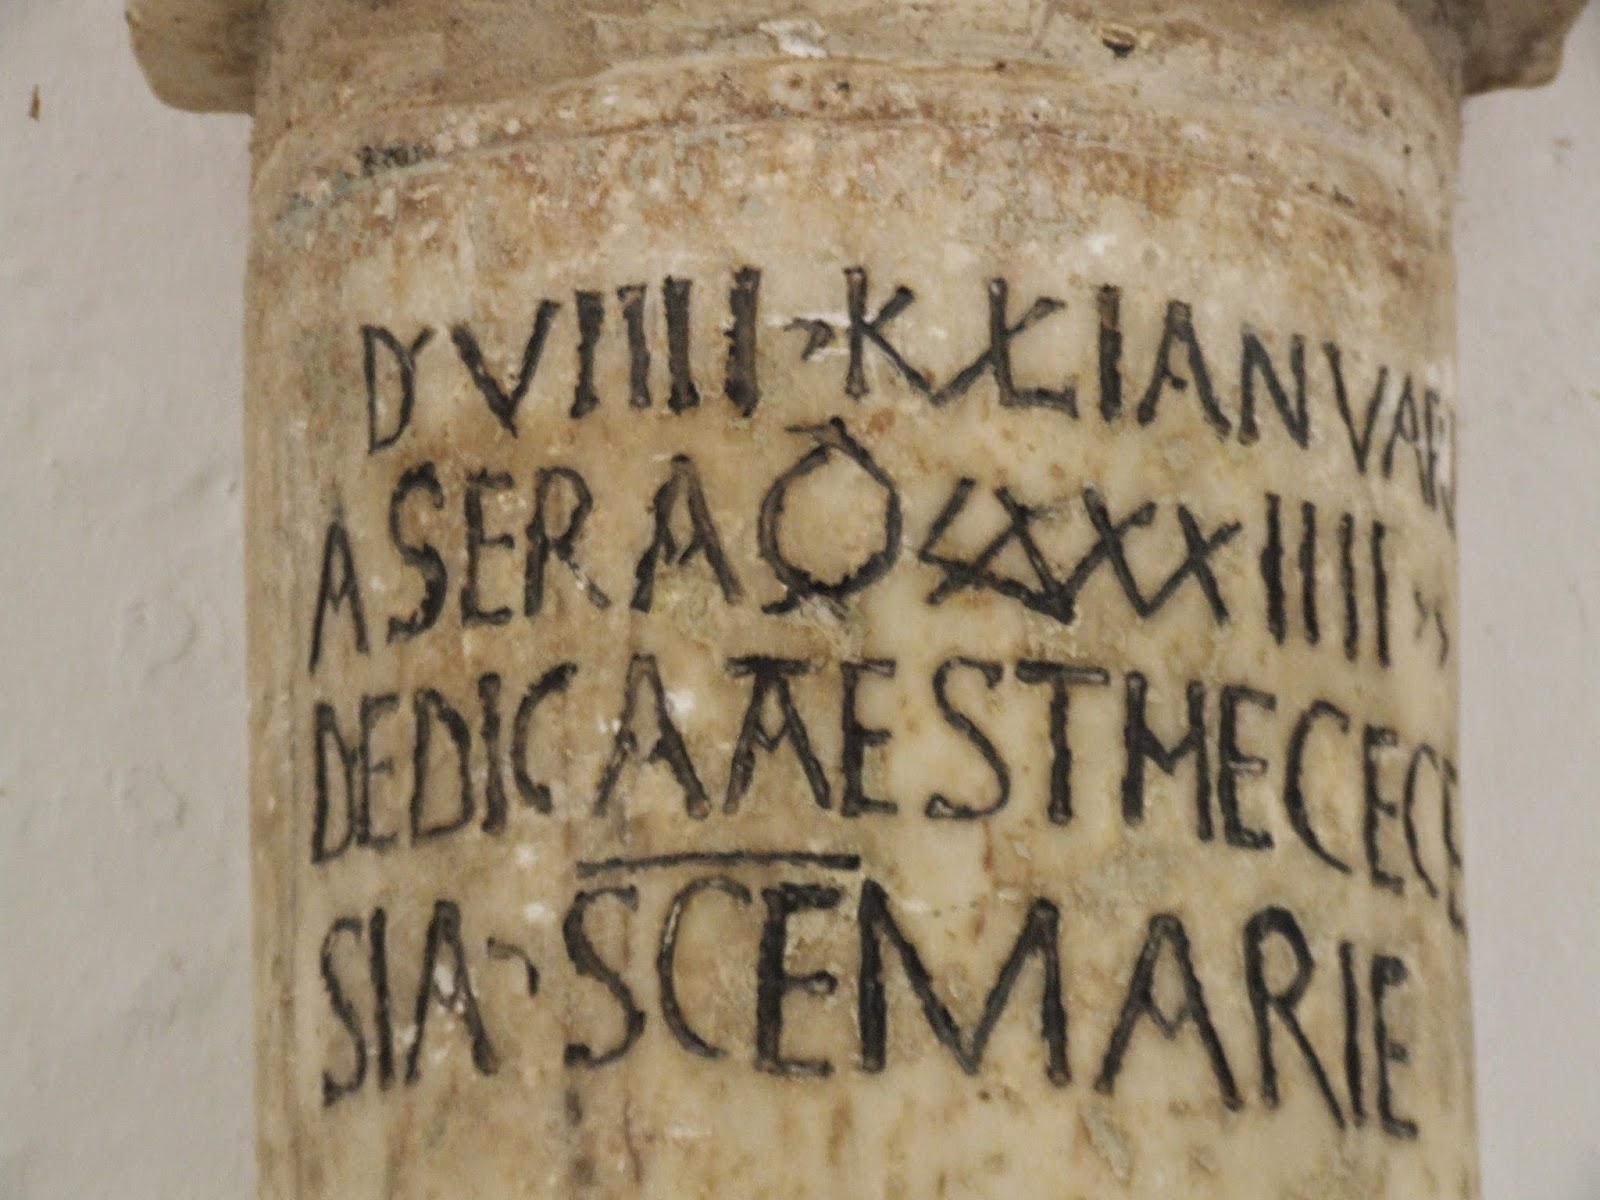 D VIIII KALIANVARI
ASERA D LXXXXIIII
DEDICATAESTHECECLE
SIA SCEMARIE